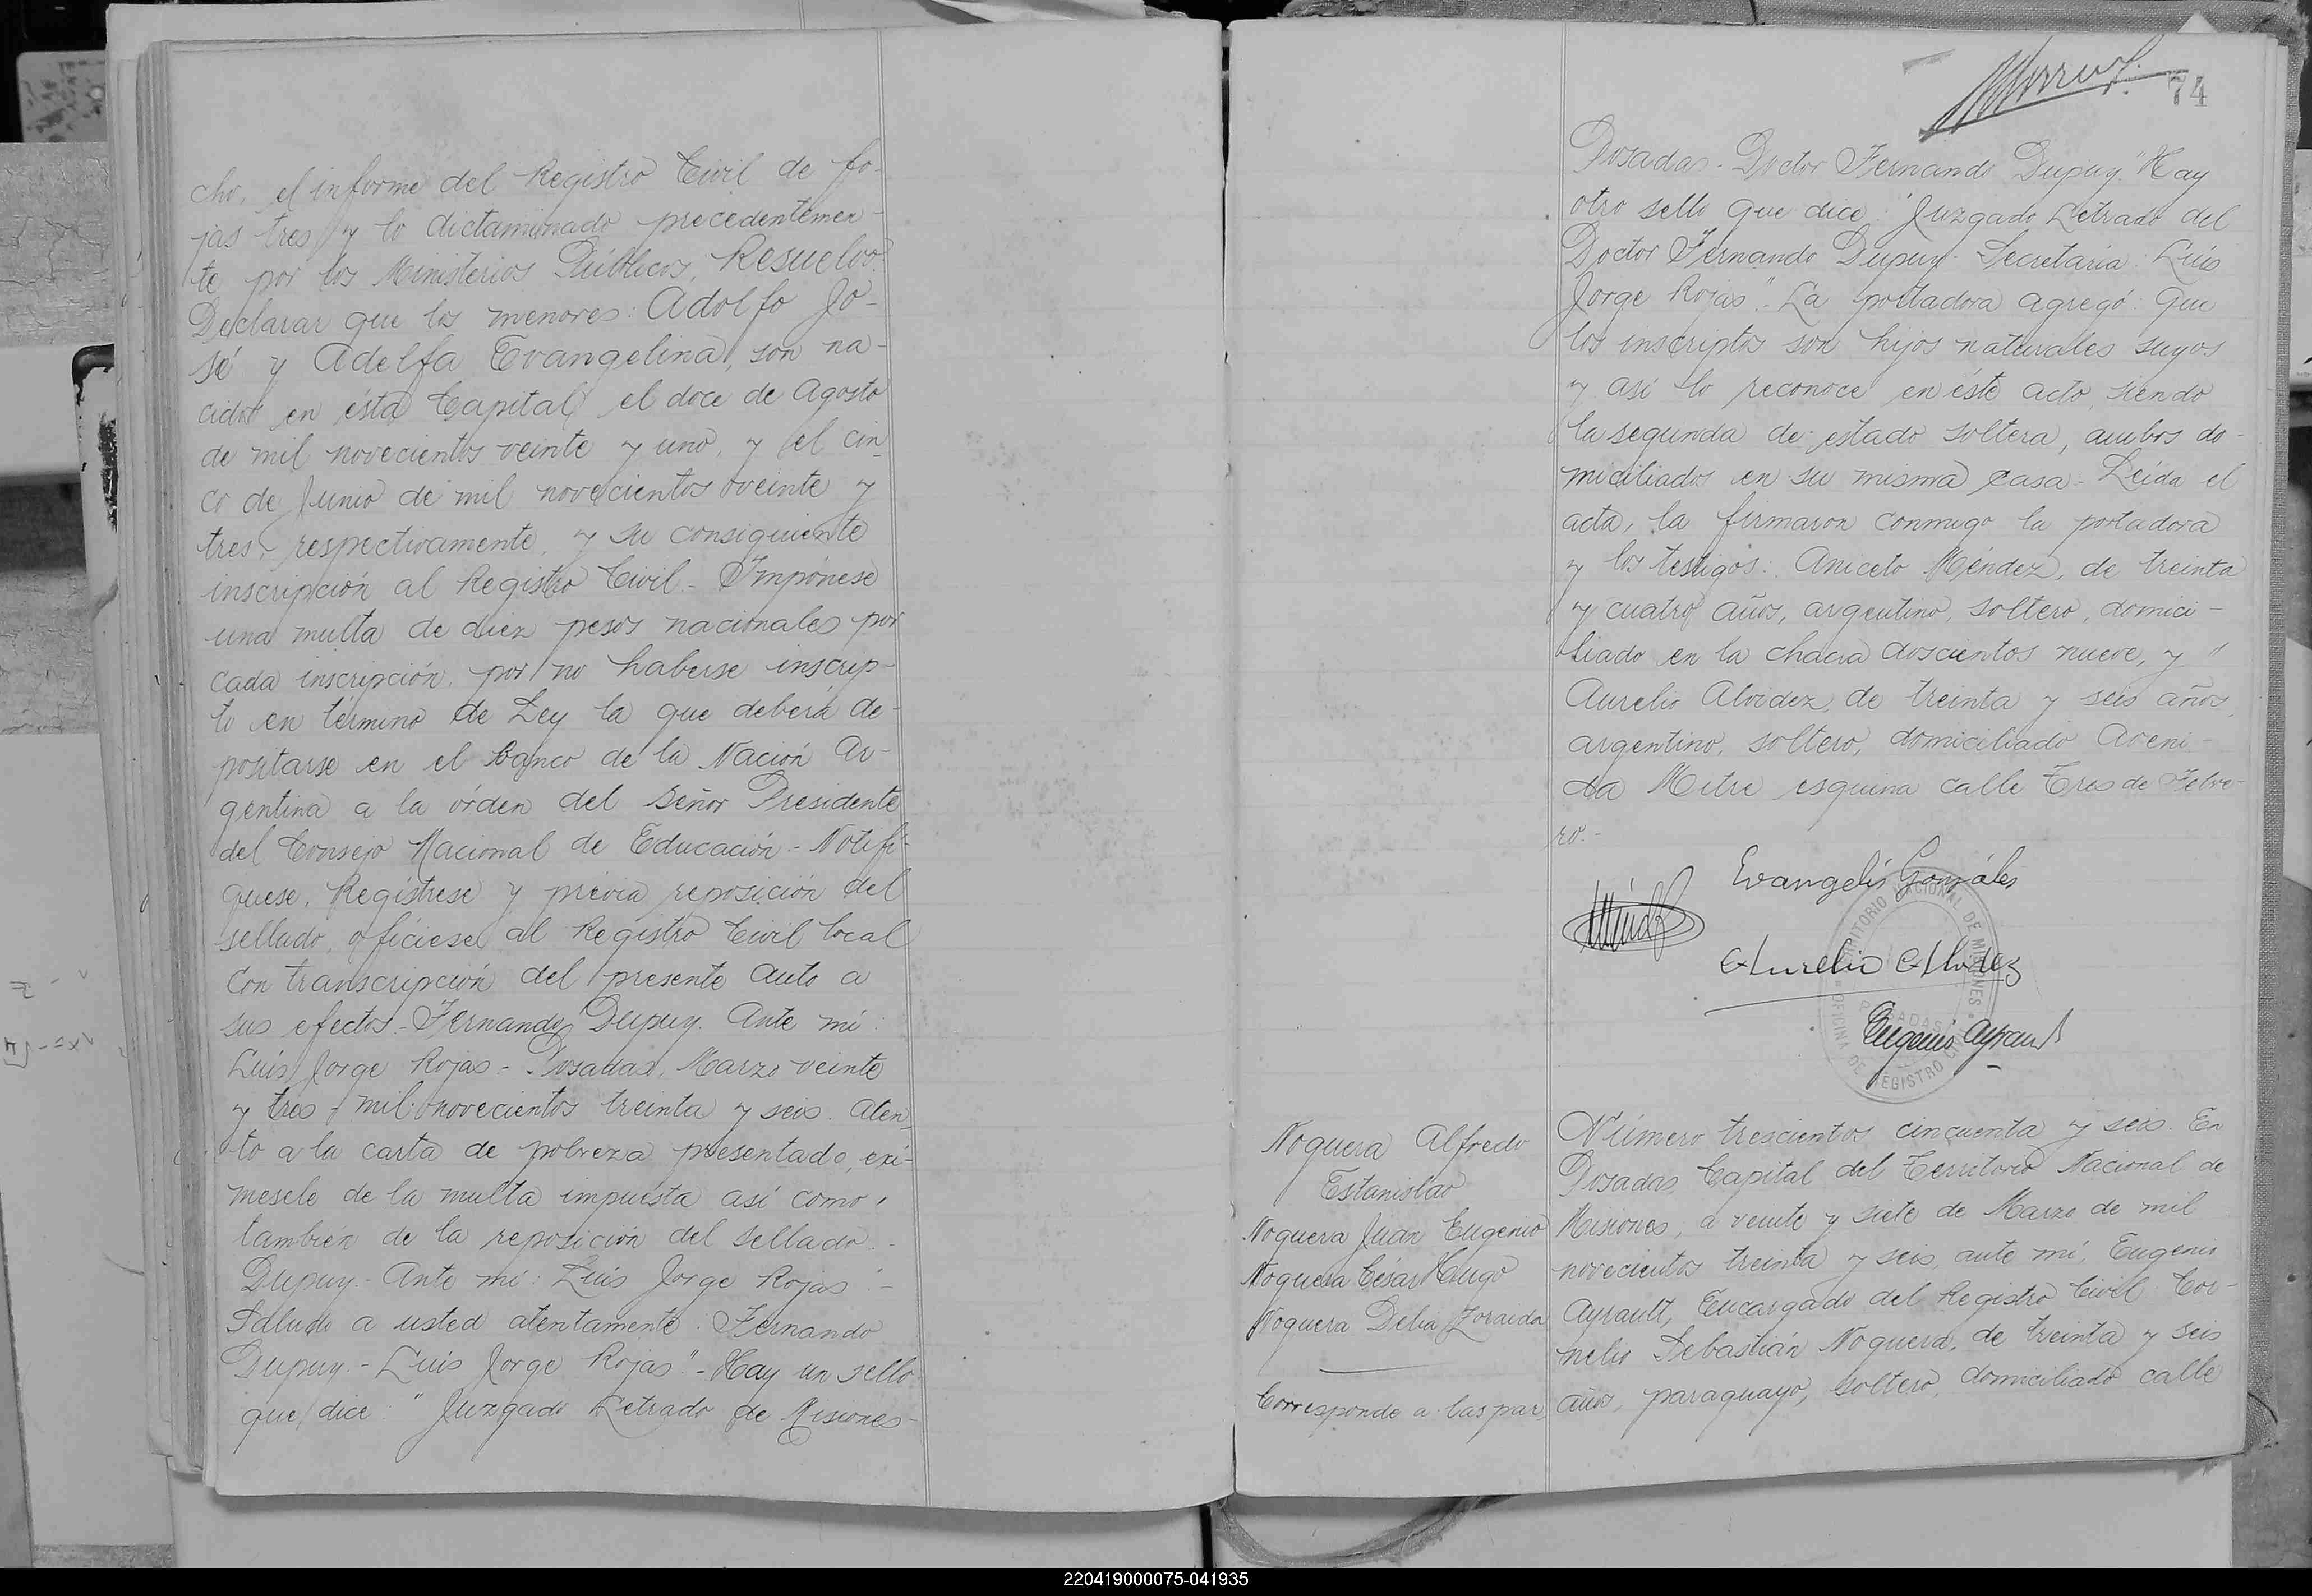 cho, el informe del Registro Civil de fo-
jas tres y lo dictaminado precedentemen-
te por los Ministerios Públicos, Resuelvo:
Declarar que los menores: Adolfo Jo-
sé y Adelfa Evangelina, son na-
cidos en ésta Capital, el doce de Agosto
de mil novecientos veinte y uno, y el cin-
co de Junio de mil novecientos veinte y
tres, respectivamente, y su consiguiente
inscripción al Registro Civil - Impónese
una multa de diez pesos nacionales por
cada inscripción, por no haberse inscrip-
to en término de Ley la que deberá de-
positarse en el banco de la Nación Ar-
gentina a la órden del Señor Presidente
del Consejo Nacional de Educación - Notifí-
quese, Regístrese y prévia reposición del
sellado, ofíciese al Registro Civil local
con transcripción del presente auto a
sus efectos. - Fernando Dupuy. Ante mí:
Luis Jorge Rojas - Posadas, Marzo veinte
y tres - mil novecientos treinta y seis. Aten-
to a la carta de pobreza presentado, exí-
mesele de la multa impuesta así como
también de la reposición del sellado. -
Dupuy. - Ante mí: Luis Jorge Rojas". -
Saludo a usted atentamente. Fernando
Dupuy. - Luis Jorge Rojas" - Hay un sello
que dice: "Juzgado Letrado de Misiones -
74
Posadas - Doctor Fernando Dupuy". Hay
otro sello que dice: "Juzgado Letrado del
Doctor Fernando Dupuy - Secretaría: Luis
Jorge Rojas". La portadora agregó: Que
los inscriptos son hijos naturales suyos
y así lo reconoce en éste acto, siendo
la segunda de estado soltera, ambos do-
miciliados en su misma casa - Leída el
acta, la firmaron conmigo la portadora
y los testigos: Aniceto Méndez, de treinta
y cuatro años, argentino, soltero, domici-
liado en la chacra doscientos nueve, y "
Aurelio Alvidez, de treinta y seis años,
argentino, soltero, domiciliado Aveni-
da Mitre esquina calle Tres de Febre-
ro. -
Evangelis Gonzáles
Aurelio Alvidez
Eugenio Ayrault
TERRITORIO NACIONAL DE MISIONES
POSADAS
OFICINA DE REGISTRO CIVIL
Noguera Alfredo
Estanislao
Noguera Juan Eugenio
Noguera César Hugo
Noguera Delia Zoraida
Corresponde a las par
Número trescientos cincuenta y seis. En
Posadas, Capital del Territorio Nacional de
Misiones, a veinte y siete de Marzo de mil
novecientos treinta y seis, ante mí, Eugenio
Ayrault, Encargado del Registro Civil: Cor-
nelio Sebastián Noguera, de treinta y seis
años, paraguayo, soltero, domiciliado calle
220419000075-041935